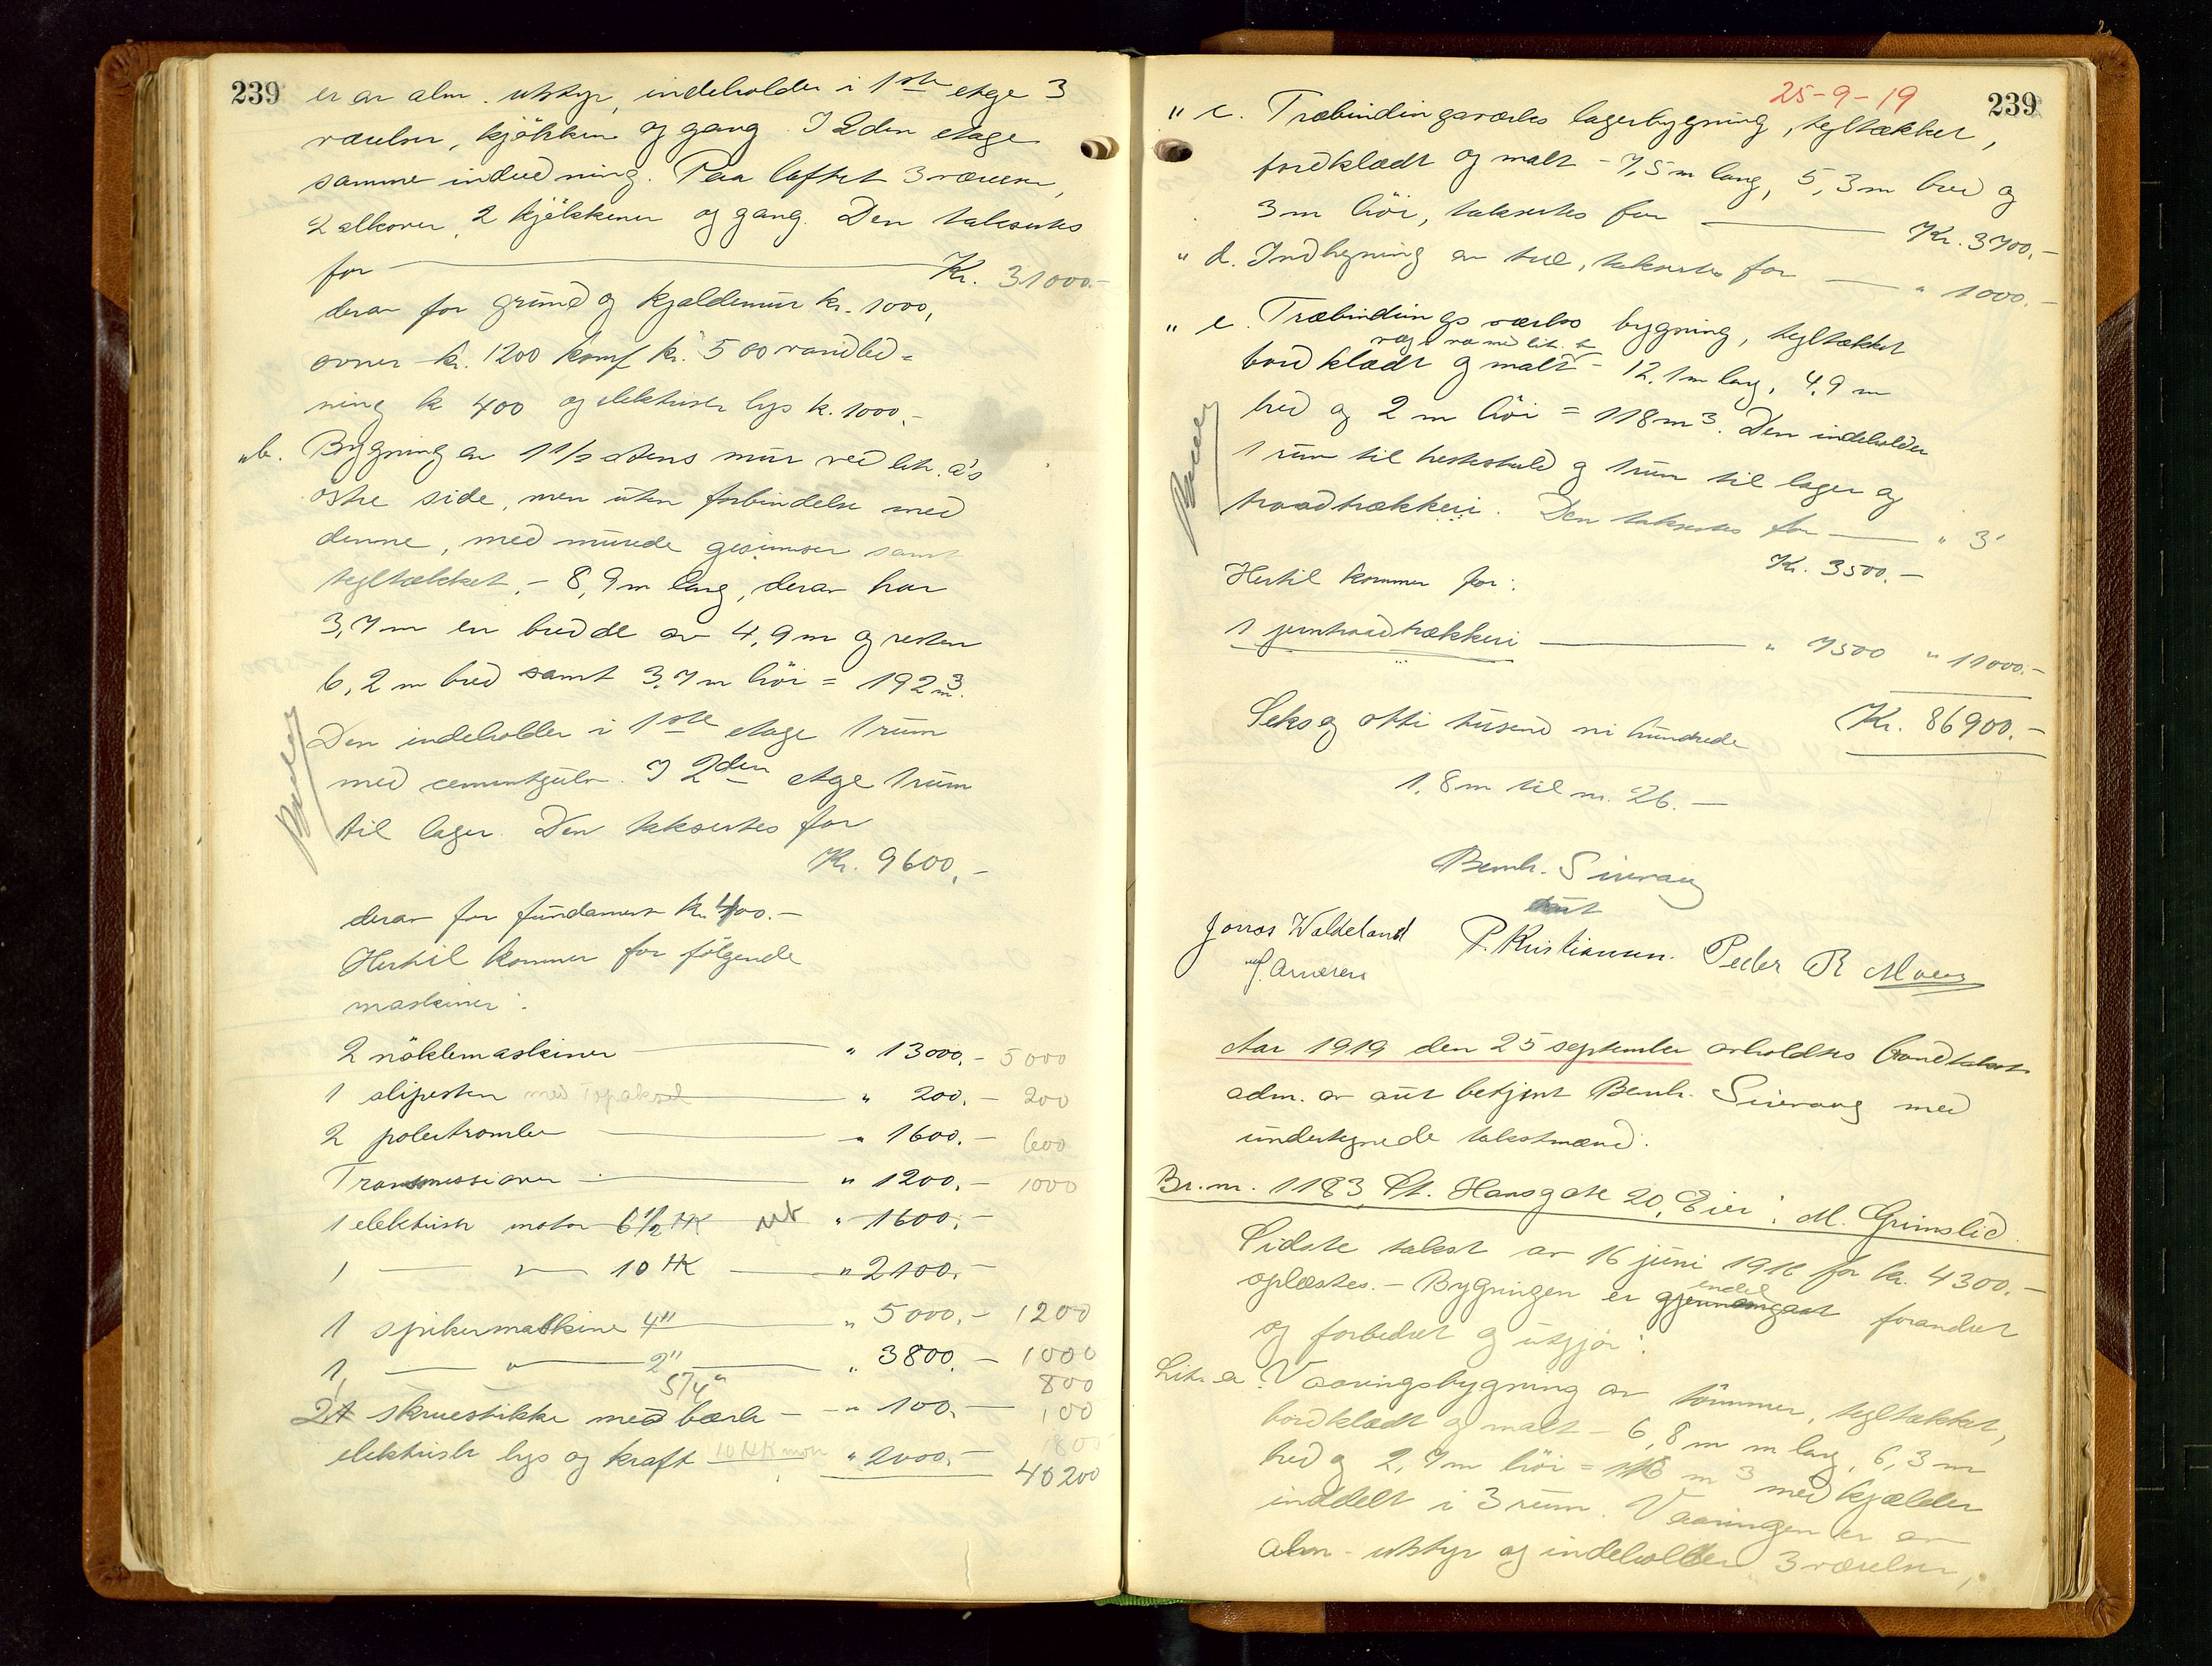 239
er av alm. utstyr, indeholder i 1ste etage 3
værelser, kjøkken og gang. I 2den etage
samme indredning. Paa loftet 3 værelser,
2 alkover, 2 kjøkkener og gang. Den takseres
for Kr. 31000.-
derav for grund og kjældermur kr. 1000,
ovner kr. 1200 komf kr. 500 vandled=
ning kr 400 og elektrisk lys kr. 1000.-
"b. Bygning av 1 1/2 stens mur ved lit. a's
østre side, men uten forbindelse med
denne, med murede gesimser samt
tegltækket. - 8,9m lang, derav har
3,7m en bredde av 4,9m og resten
6,2m bred samt 3,7m høi = 192m3.
Den indeholder i 1ste etage 1 rum
med cementgulv. I 2den etage 1 rum
til lager. Den takseres for
Kr. 9600.-
derav for fundament kr. 400.-
Hertil kommer for følgende
maskiner:
2 nøklemaskiner " 13000.- 5000
1 slipesten med " 200.- 200
2 polertromler " 1600.- 600
Transmissioner " 1200.- 1000
1 elektrisk motor 6 1/2 HK ut " 1600.-
1 " 10 HK " 2100.-
1 spikermaskine 4" " 5000.- 1200
1 " 2" " 3800.- 1000
5/4" 800
2 skruestikke med bænk - " 100.- 100
elektrisk lys og kraft 10 HK motor " 2000.- 1800
40200
25-9-19
239
" c. Træbindingsverks lagerbygning, tegltækket,
bordklædt og malt - 7,5m lang, 5,3m bred og
3m høi, takseres for Kr. 3700.-
" d. Indhegning av træ, takseres for " 1000.-
" e. Træbindingsverks bygning, tegltækket
bordklædt og malt - 12,1m lang, 4,9m
bred og 2m høi = 118m3. Den indeholder
1 rum til hestestald og 1 rum til lager og
traadtrækkeri. Den takseres for " 3
Kr. 3500.-
Hertil kommer for:
1 jerntraadtrækkeri " 7500 " 11000.-
Kr. 86900.-
Seks og otti tusend ni hundrede
1,8m til nr. 26.-
Bernh. Sirevaag
aut
Jonas Waldeland P. Kristiansen. Peder R Moen
J. Arnesen
Aar 1919 den 25 september avholdtes brandtakst
adm. av aut betjent Bernh. Sirevaag med
undertegnede takstmænd.
Br.nr. 1183, St. Hansgate 20, Eier: M. Grimslid.
Sidste takst av 16 juni 1916 for kr. 4300.-
oplæstes. - Bygningen er endel forandret
og forbedret og utgjør:
Lit. a. Vaaningsbygning av tømmer, tegltækket,
bordklædt og malt - 6,8m m lang, 6,3m
bred og 2,7m høi = 116 m3 med kjælder
inddelt i 3 rum. Vaaningen er av
alm. utstyr og indeholder 3 værelser,